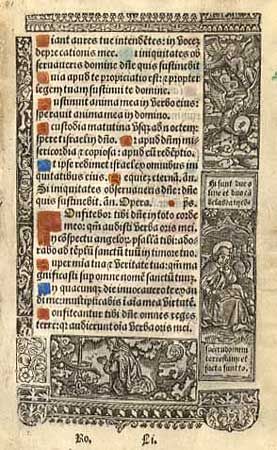 Fiant aures tue intendētes: in vocē
deprecationis mee. Si iniquitates ob
seruaueris domine: dn̄e quis sustinebit
Quia apud te propiciatio est: ⁊ propter
legem tuam sustinui te domine.
Sustinuit anima mea in verbo eius:
sperauit anima mea in domino.
A custodia matutina vsq̄ ad noctem:
speret israel in dn̄o. Quia apud dn̄m mi
sericordia ⁊ copiosa: apud eū redēptio.
Et ipse redimet israel ex omnibus ini
quitatibus eius. Requiē eternā. añ.
Si iniquitates obseruaueris dn̄e: dn̄e
quis sustinebit. añ. Opera. ps.
Confitebor tibi dn̄e in toto corde
meo: qm̄ audisti verba oris mei.
In cōspectu angelorū psallā tibi: ado
rabo ad tēplū sanctū tuū ⁊
Super mīa tua ⁊ veritate tua: qm̄ ma
gnificasti sup omne nomē sanctū tuū.
In quacunq̄ die inuocauero te exaudi
me: multiplicabis ī aīa mea virtutē.
Confiteantur tibi dn̄e omnes reges
terre: qr audierunt oīa verba oris mei.
Ro. Li.